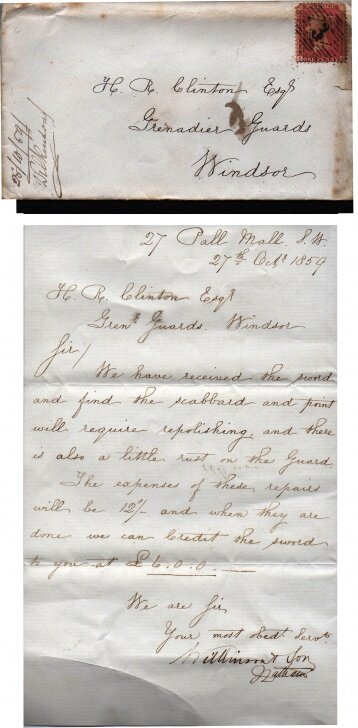 ONE PENNY
H. R. Clinton Esqr
Grenadier Guards
Windsor
27 Pall Mall S.W.
27th Octr 1859
H. R. Clinton Esqr
Grenr Guards. Windsor
Sir/
We have received the sword
and find the scabbard and point
will require repolishing, and there
is also a little rust on the Guard.
The expenses of these repairs
will be 12/- and when they are
done we can Credit the sword
to you at £6.0.0.
We are Sir,
Your most obedt Servts
Wilkinson & Son